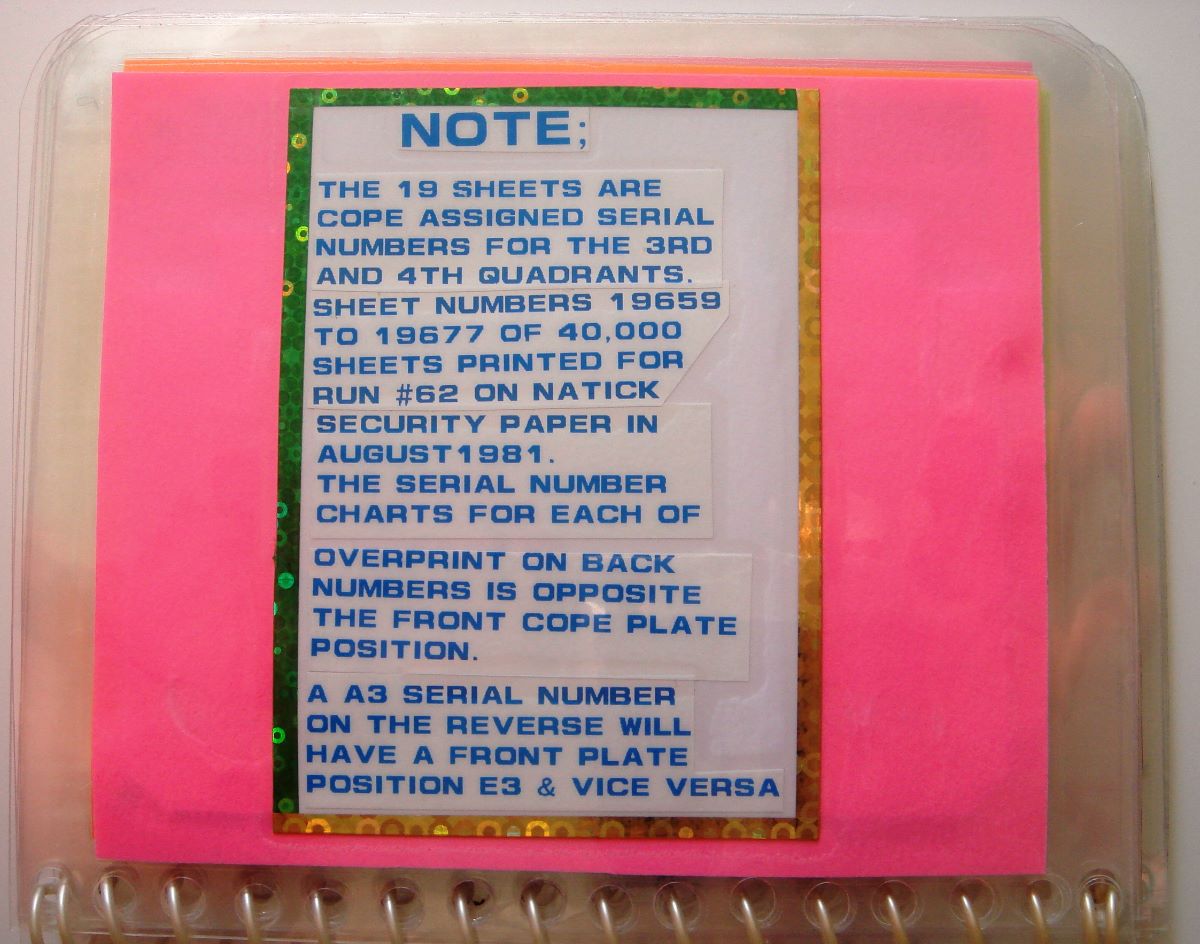 NOTE;
THE 19 SHEETS ARE
COPE ASSIGNED SERIAL
NUMBERS FOR THE 3RD
AND 4TH QUADRANTS.
SHEET NUMBERS 19659
TO 19677 OF 40,000
SHEETS PRINTED FOR
RUN #62 ON NATICK
SECURITY PAPER IN
AUGUST1981.
THE SERIAL NUMBER
CHARTS FOR EACH OF
OVERPRINT ON BACK
NUMBERS IS OPPOSITE
THE FRONT COPE PLATE
POSITION.
A A3 SERIAL NUMBER
ON THE REVERSE WILL
HAVE A FRONT PLATE
POSITION E3 & VICE VERSA